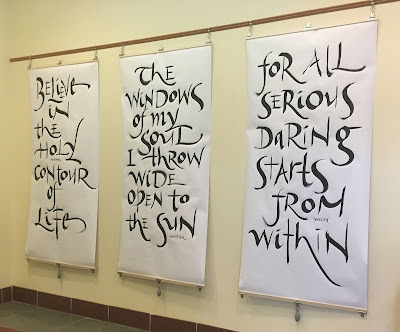 Believe
in
the
Holy
contour
of
Life
the
windows
of my
soul
I throw
wide
open to
the sun
whittier
for all
serious
daring
starts
from
welty
within